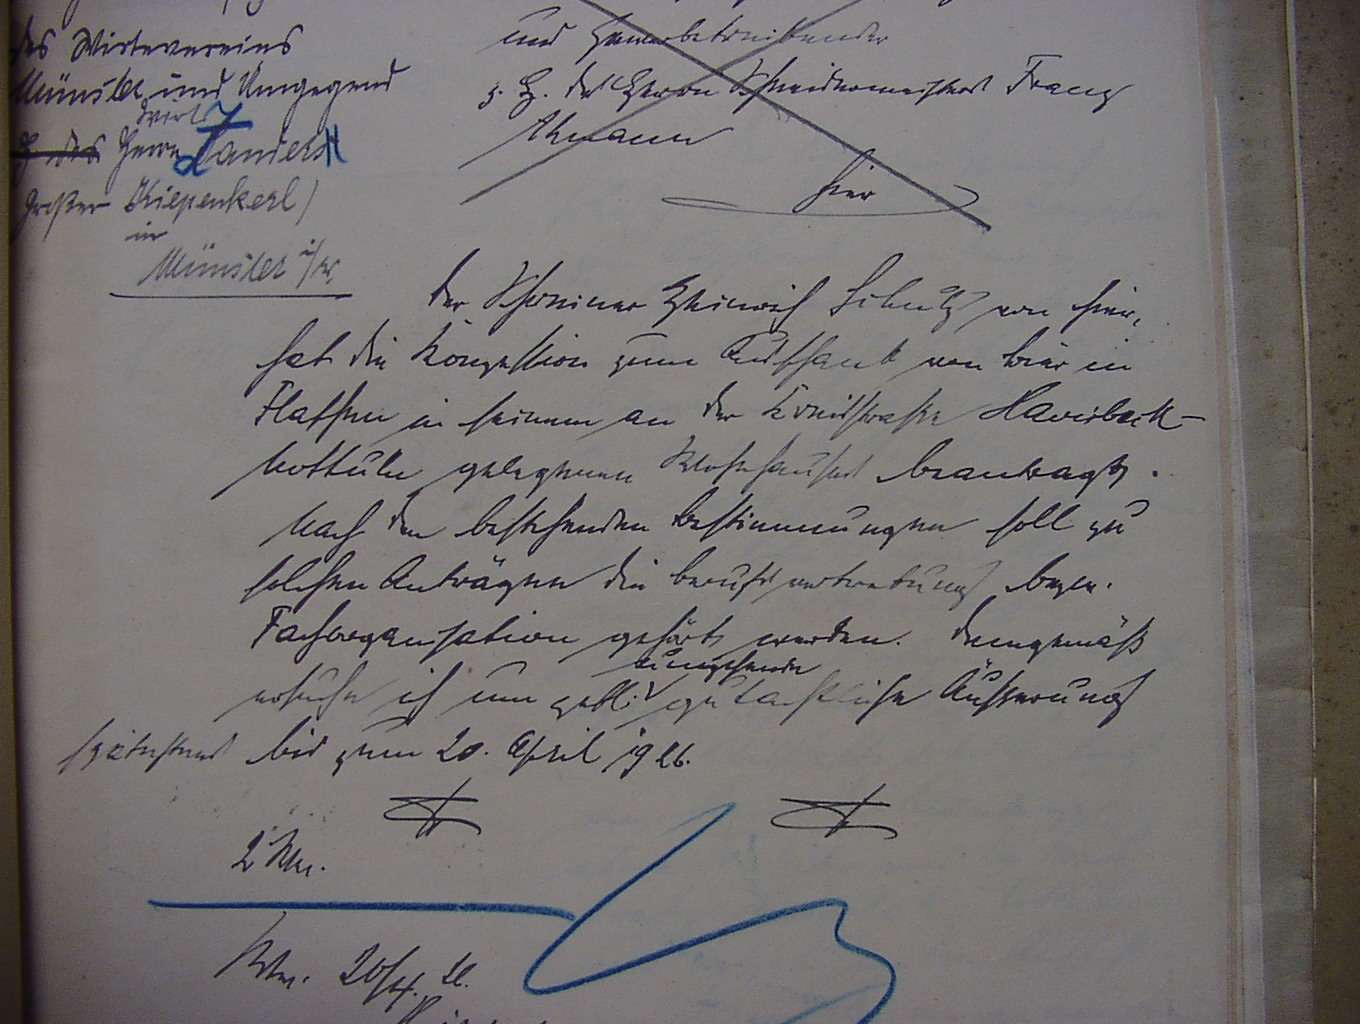 des Wirtevereins
Münster und Umgegend
Wirt
z. H. des Herrn Sanders
Großer Kiepenkerl)
in
Münster i/W.
und Gewerbetreibender
z. H. des Herrn Schneidermeisters Franz
hier
Der Schreiner Heinrich Schulz von hier,
hat die Konzession zum Ausschank von Bier in
Flaschen in seinem an der Havixbeck-
Nottuln gelegenen Wohnhauses beantragt.
Nach den bestehenden Bestimmungen soll zu
solchen Anträgen die Berufsvertretung bezw.
Fachorganisation gehört werden. Demgemäß
ersuche ich um gefl. umgehende gutachtliche Äußerung
spätestens bis zum 20. April 1926.
2 Wv.
Wv. 20/4. 26.